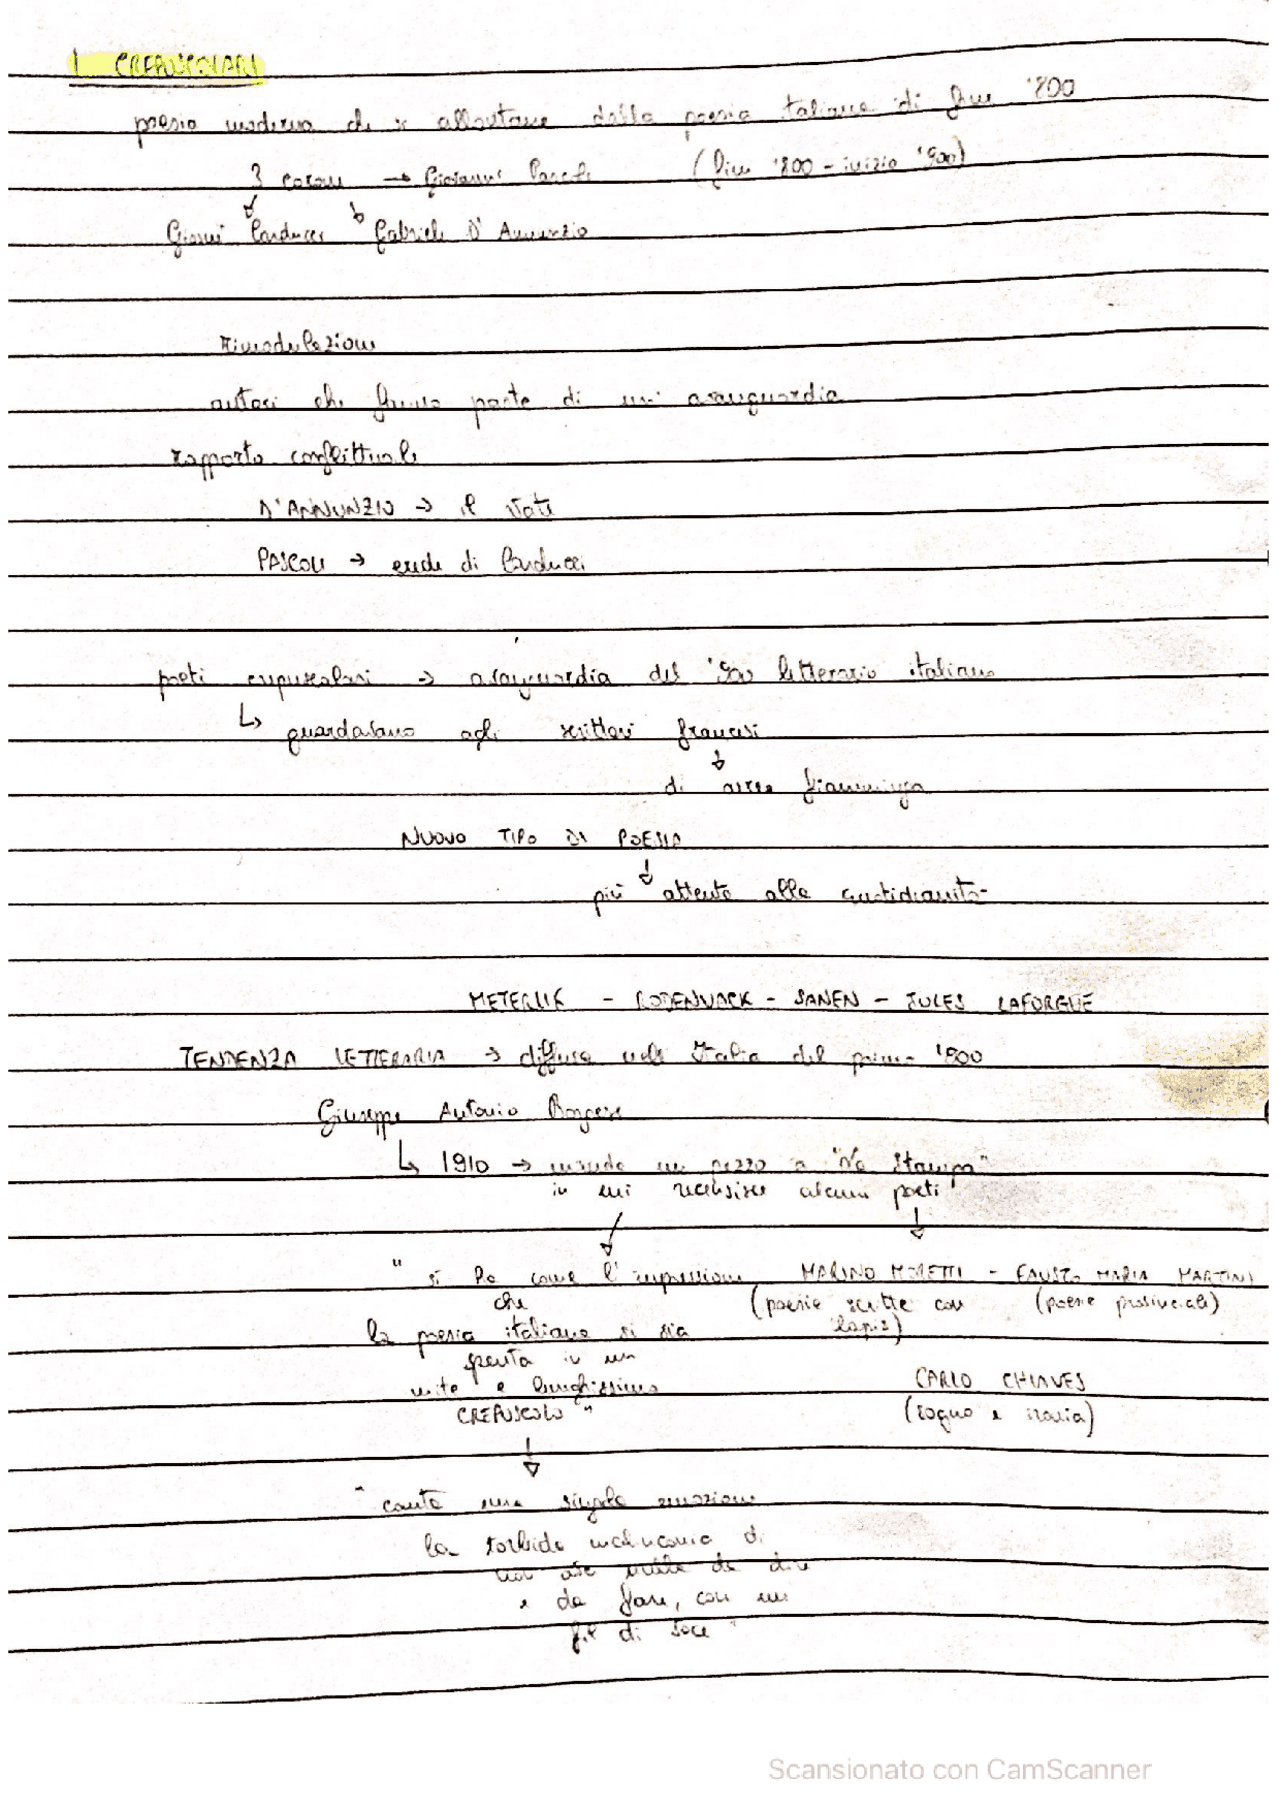 I CREPUSCOLARI
poesia moderna che si allontana dalla poesia italiana di fine '800
3 corone → Giovanni Pascoli (fine '800 - inizio '900)
Giosuè Carducci Gabriele D'Annunzio
rimodulazione
autori che fanno parte di un'avanguardia
rapporto conflittuale
D'ANNUNZIO → il Vate
PASCOLI → erede di Carducci
poeti crepuscolari → avanguardia del '900 letterario italiano
↳ guardavano agli scrittori francesi
di area fiamminga
NUOVO TIPO DI POESIA
più attenta alla quotidianità
METERLIK - RODENVACK - SANEN - JULES LAFORGUE
TENDENZA LETTERARIA → diffusa nell'Italia del primo '900
Giuseppe Antonio Borgese
↳ 1910 → un pezzo a "La Stampa"
in cui recensisce alcuni poeti
"si ha come l'impressione MARINO MORETTI - FAUSTO MARIA MARTINI
che (poesie scritte con (poesie provinciali)
la poesia italiana si sia lapis)
spenta in un
mite e lunghissimo CARLO CHIAVES
CREPUSCOLO" (sogno e ironia)
"canta una singola emozione
la torbida malinconia di
non aver nulla da dire
e da fare, con un
fil di voce"
Scansionato con CamScanner